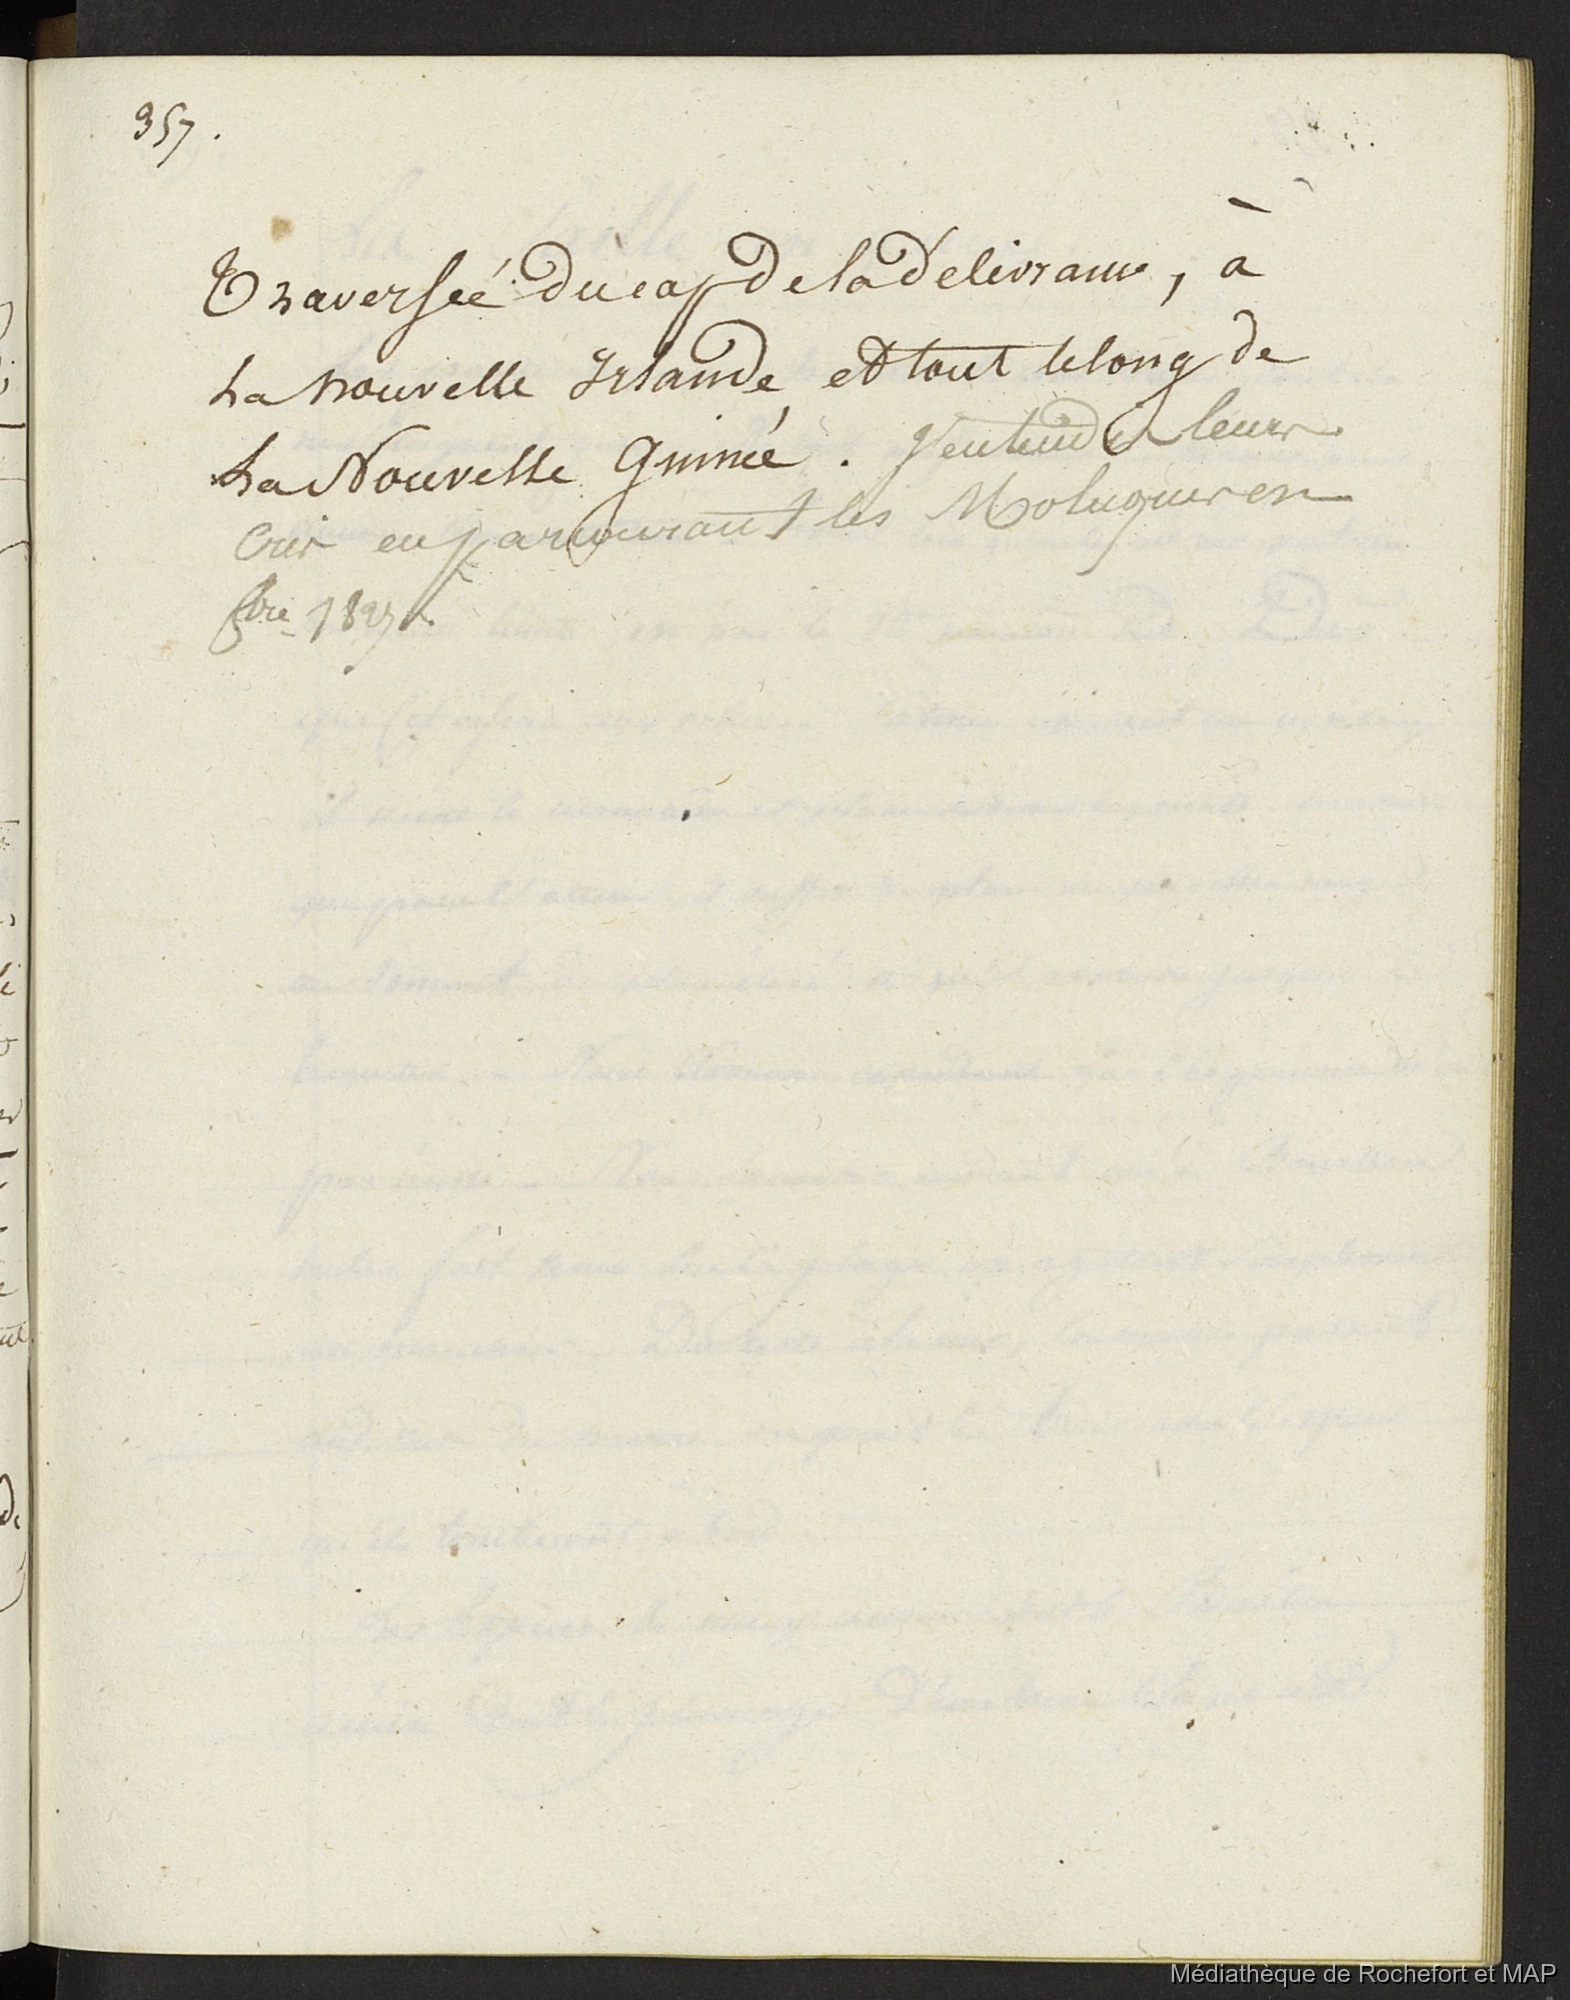 357.
Traversée du cap de la Delivrance, à
La Nouvelle Irlande et tout le long de
La Nouvelle Guinée. J'entendis leurs
Cris en parcourant les Moluques en
bre 1827.
Médiathèque de Rochefort et MAP